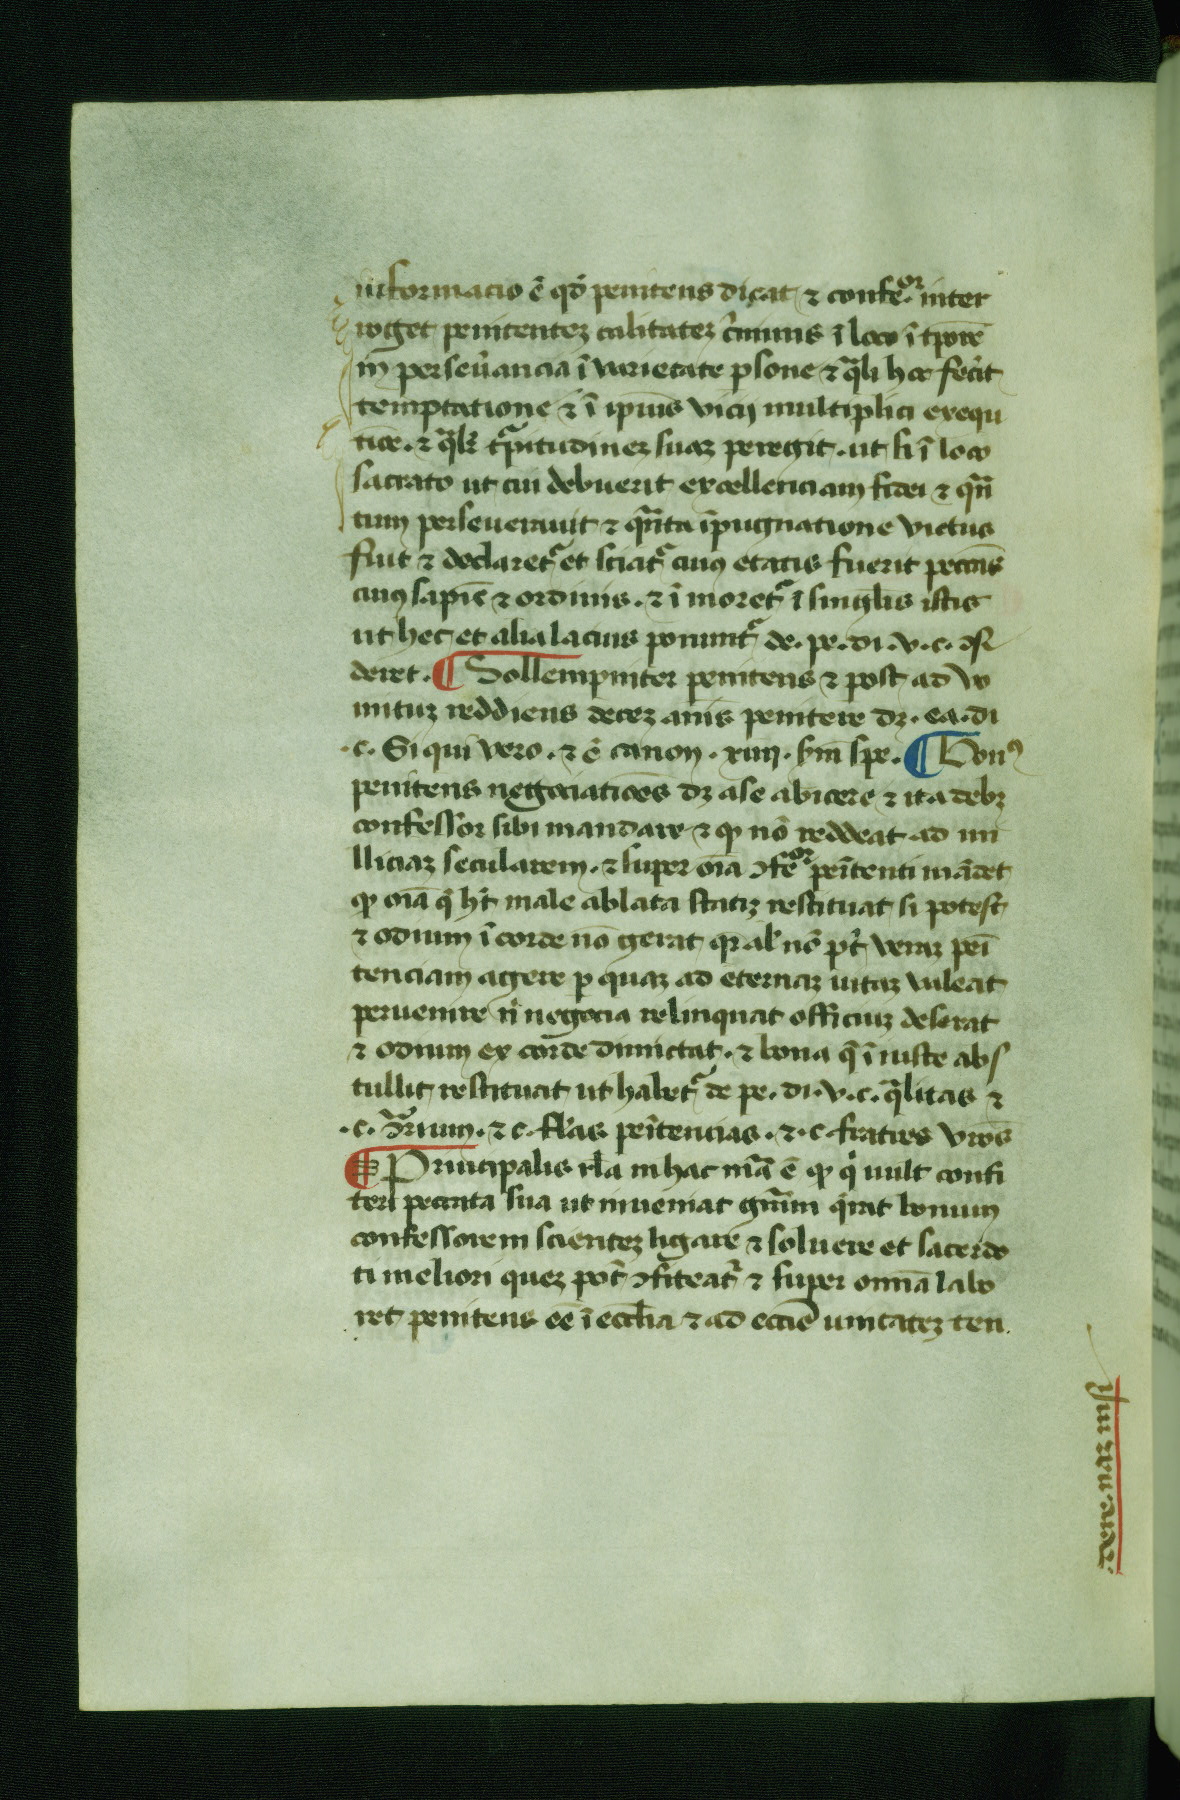 informacio ē qđ penitens dicat ⁊ confeᵒʳ. inter
roget penitentez calitatez c̓minis ī loco ī tpore
in perseūancia ī varietate psone ⁊ qͣli hoc fec̓it
temptatione ⁊ ī ipius vicij multiplici exequ
tiōe. ⁊ qͣlr̄ tͥpitudinez suaz peregit. ut si ī loco
sacrato ut cui debuerit excellenciam fidei ⁊ qn̄
tum perseuerauit ⁊ qn̄ta īpugnatione victus
fiut ⁊ declaretᷣ et sciatᷣ cuiꝰ etatis fuerit peccās
cuiꝰ sapiē ⁊ ordinis. ⁊ ī moretᷣ ī singlis istis
ut hec et alia lacius ponuntᷣ de. pe. di. v. c. ꝯsi
deret. ¶ Sollempniter penitens ⁊ post ad vo
mituz reddiens decez anis penitere dz. ea. di
.c. Si qui vero. ⁊ ē canon. xiiij. sm̄ spe. ¶ Bonꝰ
penitens negociatiōes dz a se abicere ⁊ ita debz
confessor sibi mandare ⁊ ꝙ nō reddeat ad mi
lliciaz secularem. ⁊ super oīa ꝯfeᵒʳ penītenti mādet
ꝙ oīa q̄ ht̄ male ablata statiz restituat si potest
⁊ odium ī corde nō gerat qr al̄ nō pt̄ veraz peī
tenciam agere ꝑ quaz ad eternaz uitaz valeat
peruenire n̄ negocia relinquat officiuz deserat
⁊ odium ex corde dimictat. ⁊ bona q̄ ī iuste abs
tullit restituat ut habetᷣ de pe. di. v. c. qͣlitas ⁊
.c. ꝯͣrium. ⁊ c. fl̄as penītencias. ⁊. c. fratres vrōs
¶ Principalis rl̄a in hac mͣa ē ꝙ q̇ uult confi
teri peccata sua ut inueniat grām q̄rat bonum
confessorem scientez ligare ⁊ soluere et sacerdo
ti meliori quez pot̄ ꝯfiteatᷣ ⁊ super omīa labo
ret penitens eē ī ecclīa ⁊ ad eccīē unitatez ten